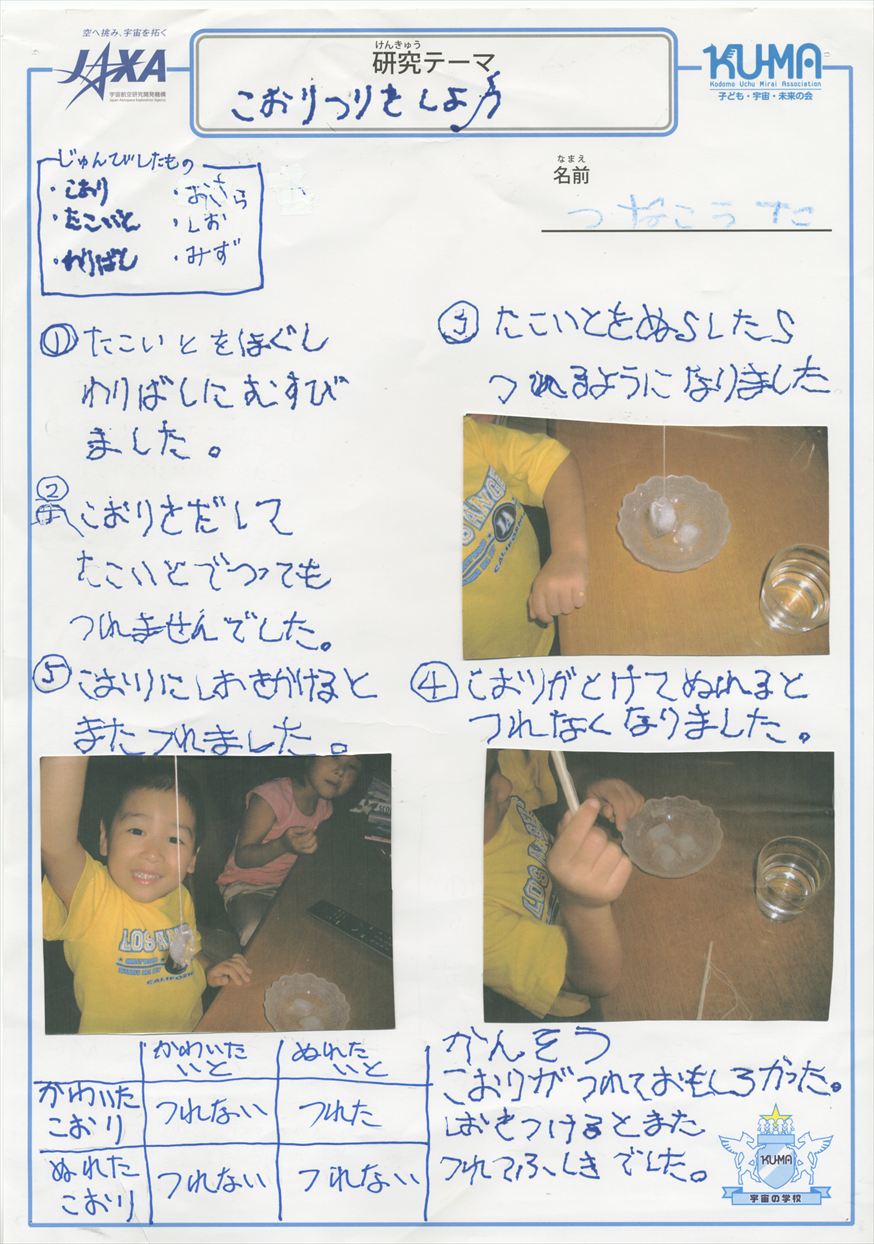 空へ挑み、宇宙を拓く
JAXA
宇宙航空研究開発機構
Japan Aerospace Exploration Agency
けんきゅう
研究テーマ
こおりつりをしよう
KU-MA
Kodomo Uchu Mirai Association
子ども・宇宙・未来の会
じゅんびしたもの
・こおり ・おさら
・たこいと ・しお
・わりばし ・みず
なまえ
名前
つなこうた
① たこいとをほぐし
わりばしにむすび
ました。
② こおりをだして
たこいとでつっても
つれませんでした。
③ たこいとをぬらしたら
つれるようになりました
④ こおりがとけてぬれると
つれなくなりました。
⑤ こおりにしおをかけると
またつれました。
LOS ANGE
LA
CALIFORNIA
LOS ANG
CALIFOR
LOS ANGE
かわいたいと ぬれたいと
かわいたこおり つれない つれた
ぬれたこおり つれない つれない
かんそう
こおりがつれておもしろかった。
しおをつけるとまた
つれてふしぎでした。
KU-MA
宇宙の学校